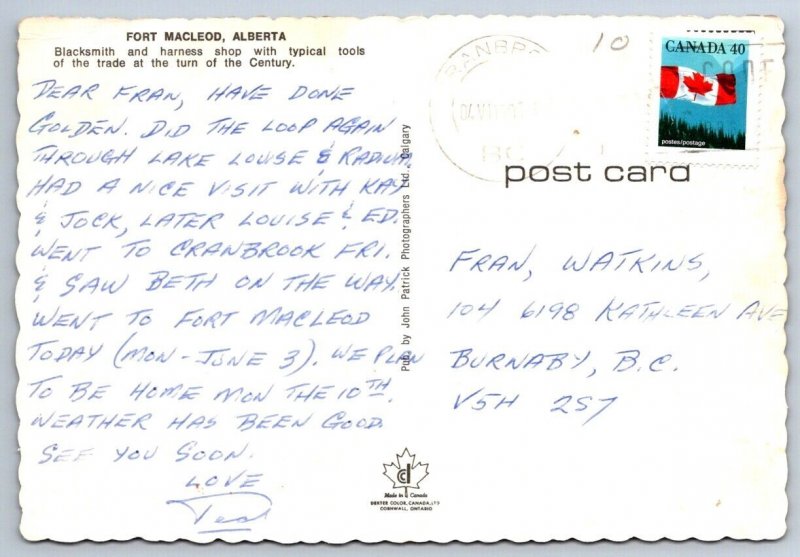 FORT MACLEOD, ALBERTA
Blacksmith and harness shop with typical tools
of the trade at the turn of the Century.
DEAR FRAN, HAVE DONE
GOLDEN. DID THE LOOP AGAIN
THROUGH LAKE LOUISE & RADIUM.
HAD A NICE VISIT WITH KAY
& JOCK, LATER LOUISE & ED.
WENT TO CRANBROOK FRI.
& SAW BETH ON THE WAY.
WENT TO FORT MACLEOD
TODAY (MON - JUNE 3). WE PLAN
TO BE HOME MON THE 10TH.
WEATHER HAS BEEN GOOD.
SEE YOU SOON.
LOVE
Ted
Pub. by John Patrick Photographers Ltd., Calgary
Made in Canada
DEXTER COLOR, CANADA, LTD
CORNWALL, ONTARIO
10
CANADA 40
postes/postage
BC
post card
FRAN, WATKINS,
104 6198 KATHLEEN AVE
BURNABY, B.C.
V5H 2S7